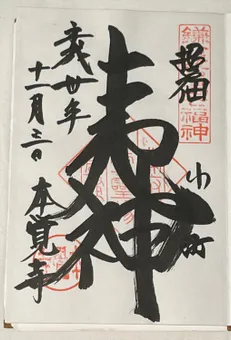 鎌倉
小町
夷神
平成廿年
十一月三日
本覺寺
福神